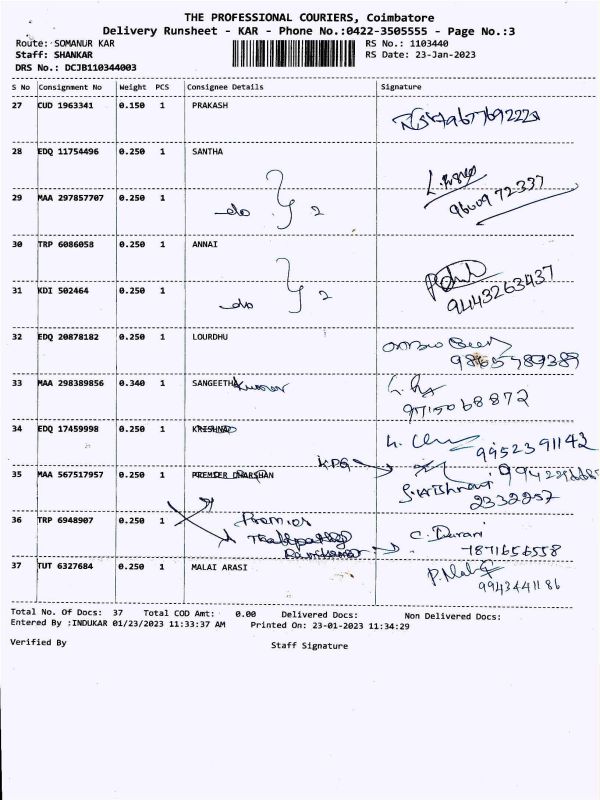 THE PROFESSIONAL COURIERS, Coimbatore
Delivery Runsheet - KAR - Phone No.:0422-3505555 - Page No.:3
Route: SOMANUR KAR RS No.: 1103440
Staff: SHANKAR RS Date: 23-Jan-2023
DRS No.: DCJB110344003
S No Consignment No Weight PCS Consignee Details Signature
27 CUD 1963341 0.150 1 PRAKASH
28 EDQ 11754496 0.250 1 SANTHA
29 MAA 297857707 0.250 1 do 2 96009 72337
30 TRP 6086058 0.250 1 ANNAI
31 KDI 502464 0.250 1 do 2 9443263437
32 EDQ 20878182 0.250 1 LOURDHU
33 MAA 298389856 0.340 1 SANGEETHA Kumar 9715068872
34 EDQ 17459998 0.250 1 KRISHNAO 9952391142
KPG
35 MAA 567517957 0.250 1 PREMIER DHARSHAN
2332257
36 TRP 6948907 0.250 1 Premier
C. Durani
7871656558
37 TUT 6327684 0.250 1 MALAI ARASI 9943441186
Total No. Of Docs: 37 Total COD Amt: 0.00 Delivered Docs: Non Delivered Docs:
Entered By :INDUKAR 01/23/2023 11:33:37 AM Printed On: 23-01-2023 11:34:29
Verified By Staff Signature